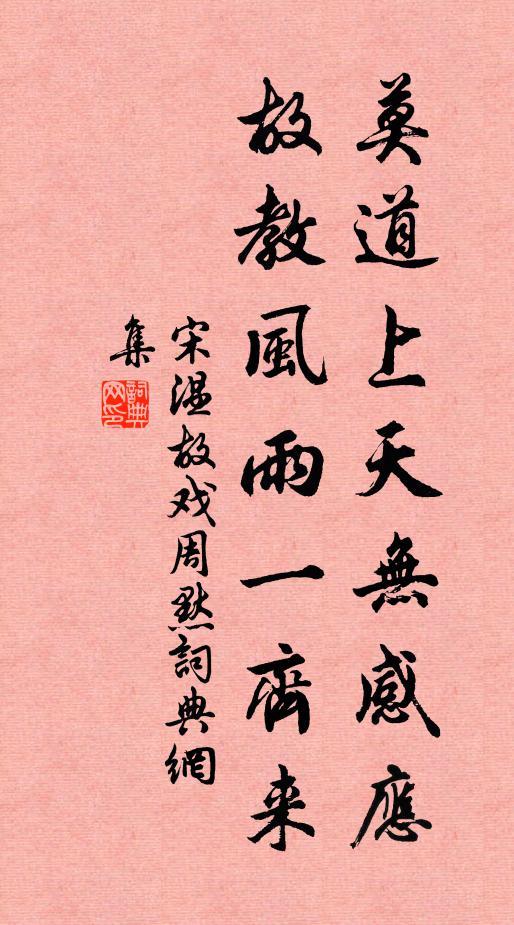 莫道上天無感應
故教風雨一齊来
宋温故戏周黙詞典網
集
詞典網印